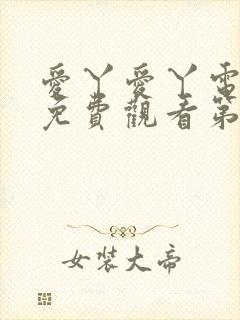 愛丫愛丫電
免費觀看第
女裝大帝